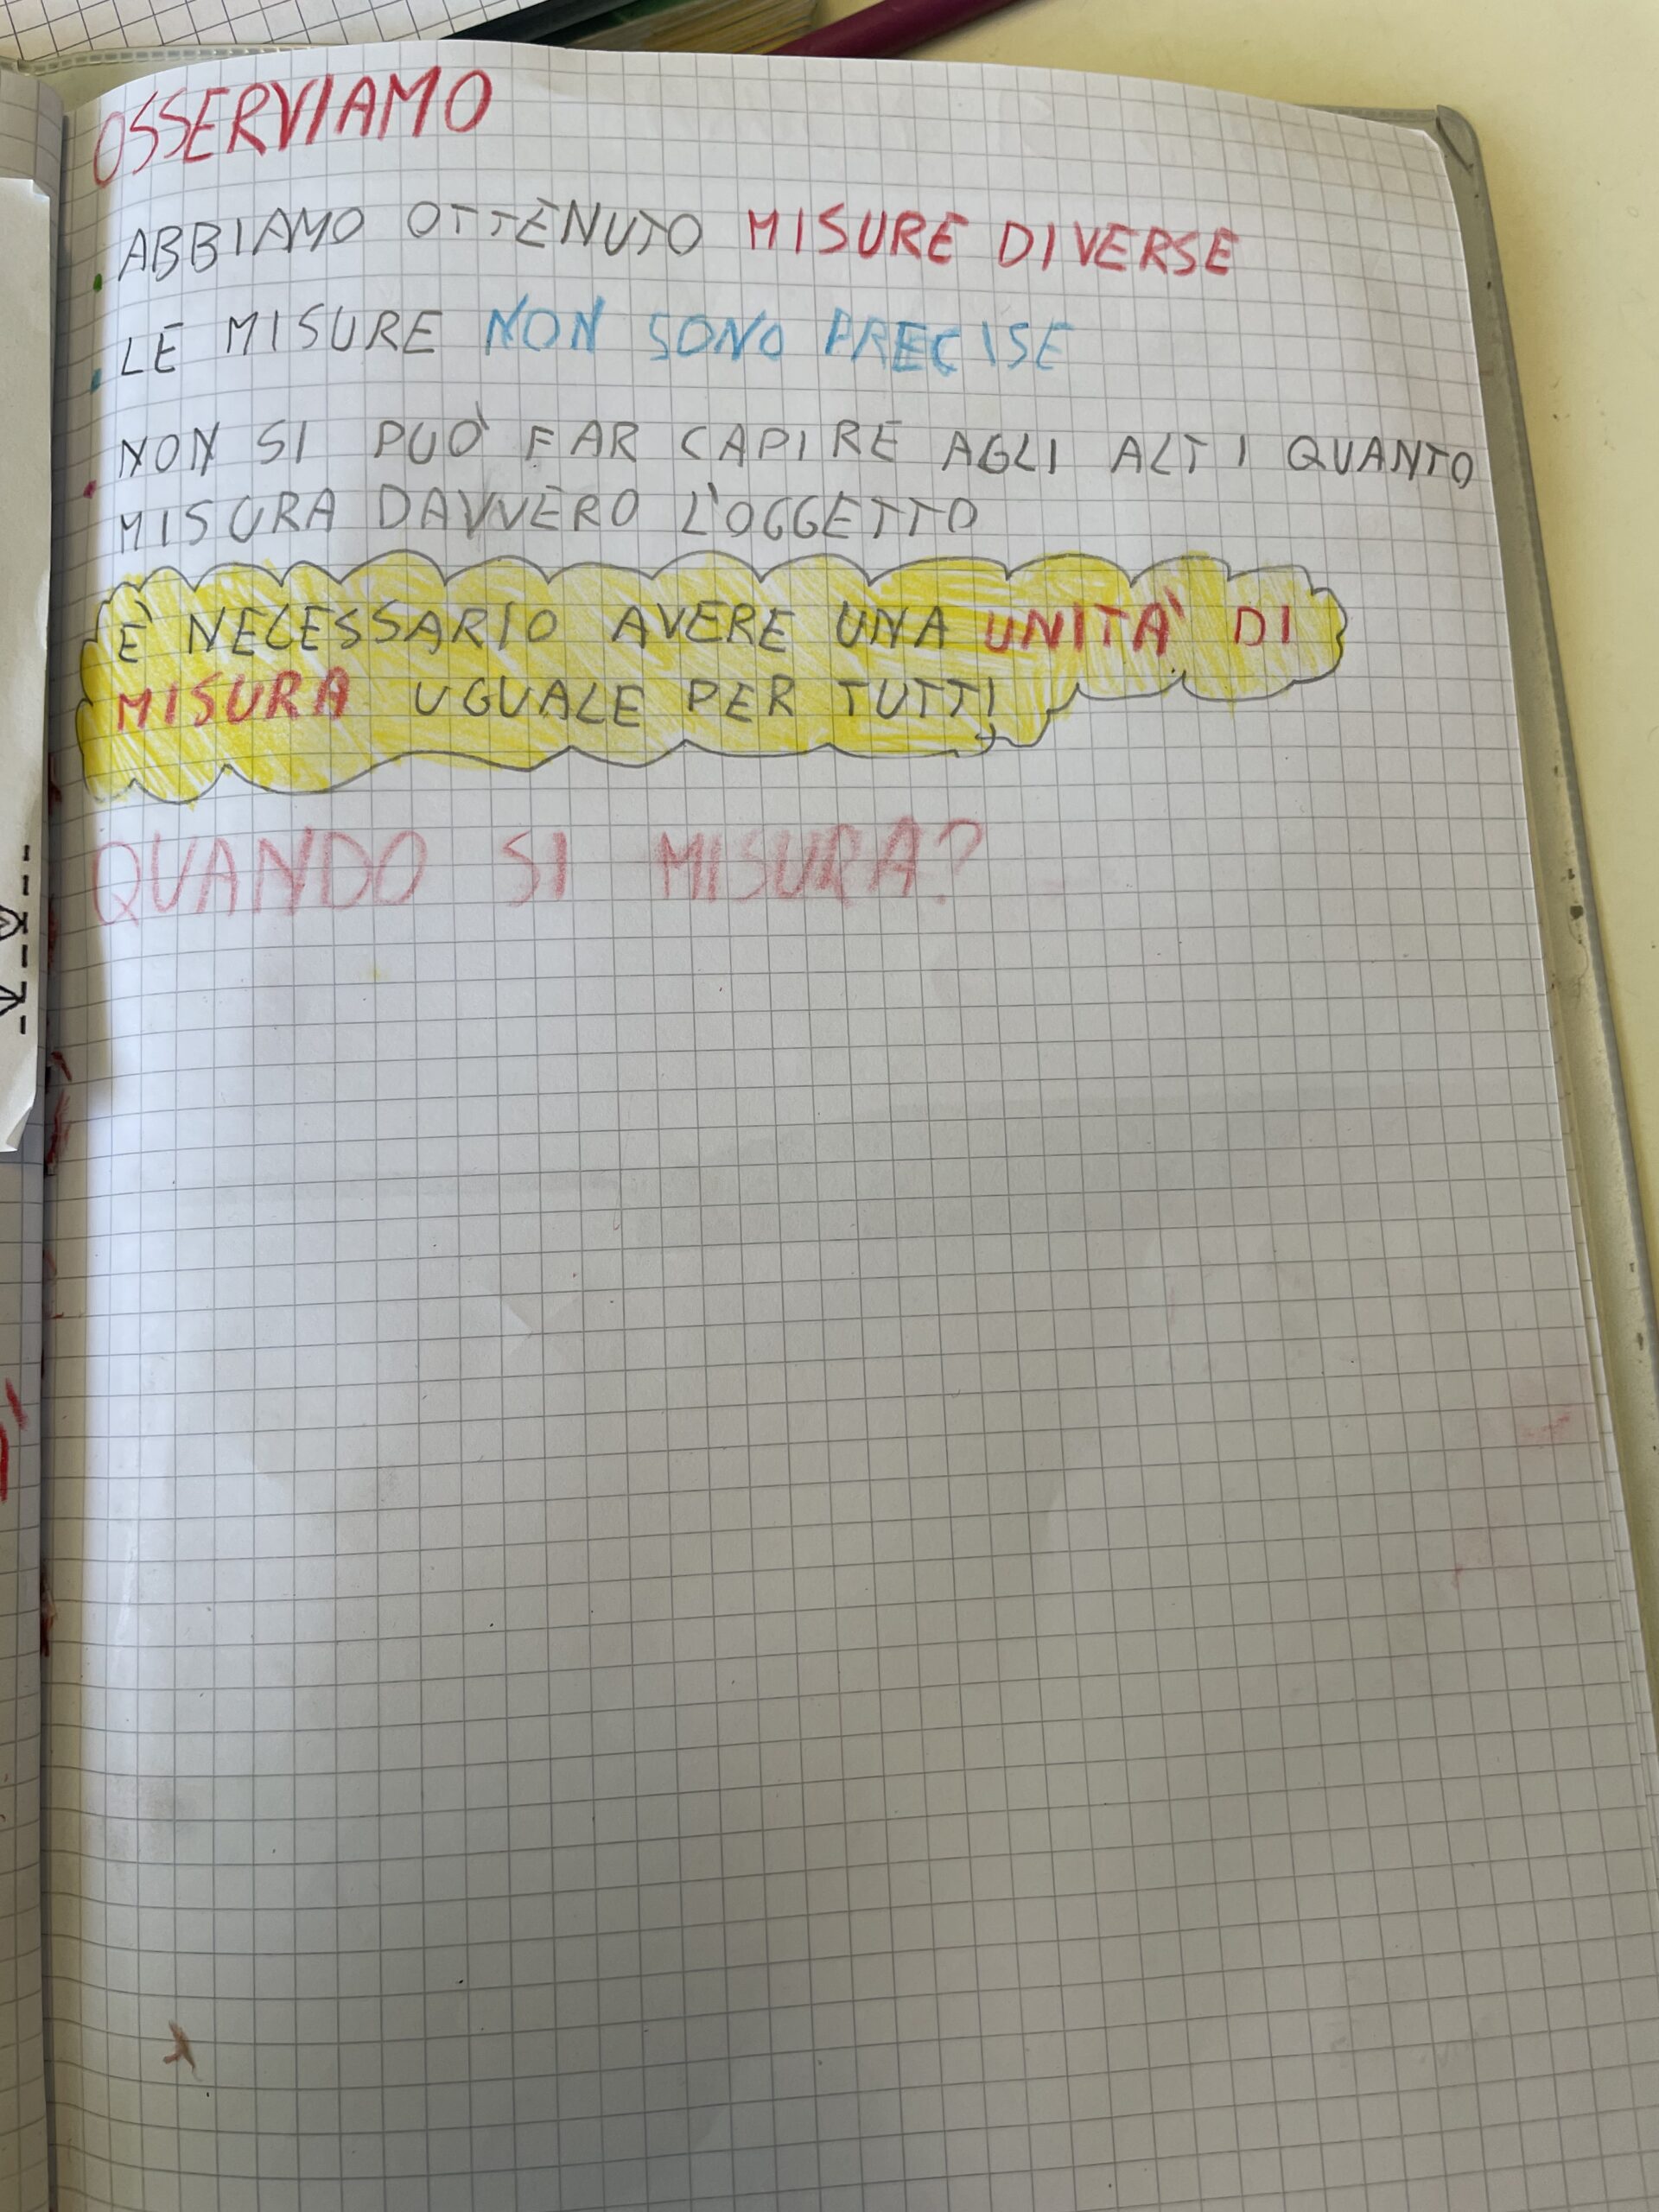 OSSERVIAMO
ABBIAMO OTTENUTO MISURE DIVERSE
LE MISURE NON SONO PRECISE
NON SI PUÒ FAR CAPIRE AGLI ALTI QUANTO
MISURA DAVVERO L'OGGETTO
È NECESSARIO AVERE UNA UNITA' DI
MISURA UGUALE PER TUTTI
QUANDO SI MISURA?